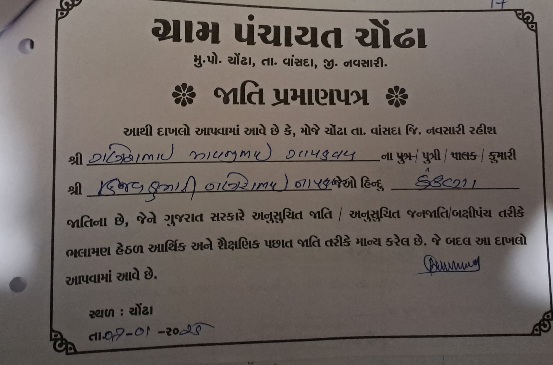 17
ગ્રામ પંચાયત ચોંઢા
મુ.પો. ચોંઢા, તા. વાંસદા, જી. નવસારી.
જાતિ પ્રમાણપત્ર
આથી દાખલો આપવામાં આવે છે કે, મોજે ચોંઢા તા. વાંસદા જિ. નવસારી રહીશ
શ્રી ના પુત્ર / પુત્રી / પાલક / કુમારી
શ્રી જેઓ હિન્દુ કુંકણા
જાતિના છે, જેને ગુજરાત સરકારે અનુસુચિત જાતિ / અનુસુચિત જનજાતિ/બક્ષીપંચ તરીકે
ભલામણ હેઠળ આર્થિક અને શૈક્ષણિક પછાત જાતિ તરીકે માન્ય કરેલ છે. જે બદલ આ દાખલો
આપવામાં આવે છે.
સ્થળ : ચોંઢા
તા. -૦૧ -૨૦